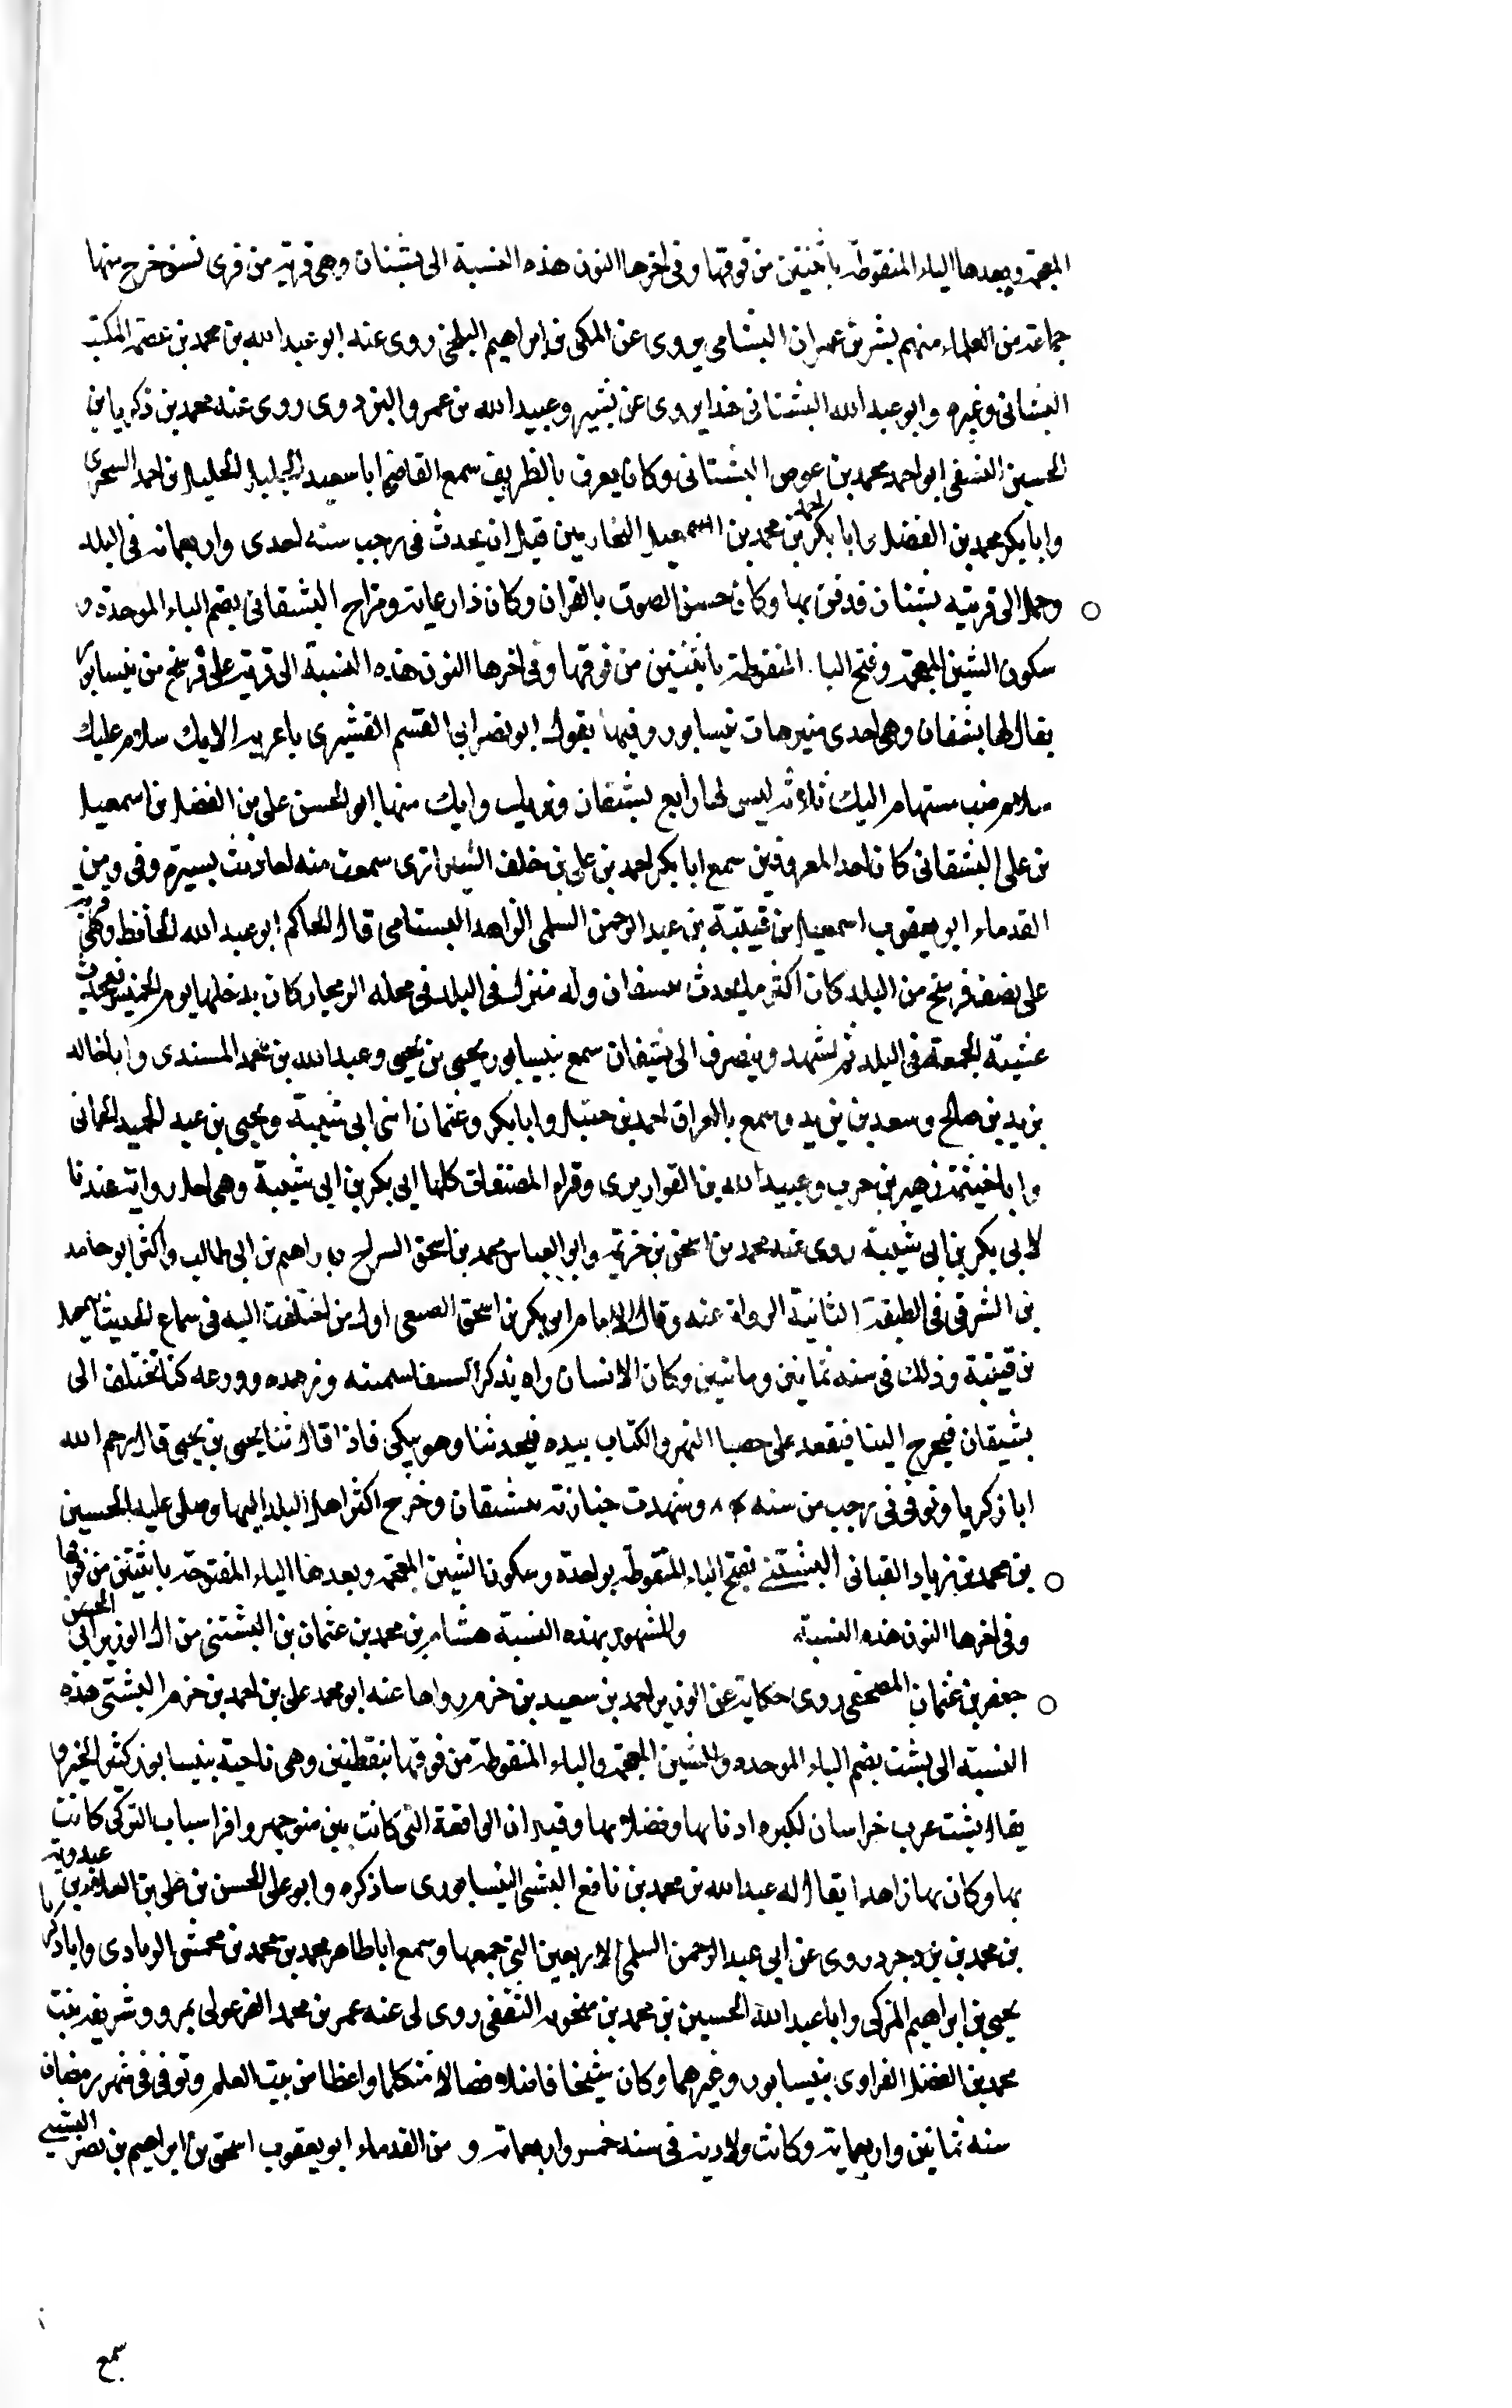 المعجمة وبعدها الياء المنقوطة باثنتين من فوقها وفى اخرها النون هذه النسبة الى بشتان وهى قرية من قرى نسف خرج منها
جماعة من العلماء منهم بشر بن عمران البشتامى يروى عن المكى بن ابراهيم البلخى روى عنه ابو عبد الله بن محمد بن المكتب
البشتانى وغيره وابو عبد الله البشتانى هذا يروى عن بشير وعبيد الله بن عمرو البزدوى روى عنه محمد بن زكريا بن
الحسين النسفى ابو احمد محمد بن عوض البشتانى وكان يعرف بالظريف سمع القاضى ابا سعيد الخليل بن احمد السجزى
وابا بكر محمد بن الفضل وابا بكر احمد بن محمد بن اسمعيل البخاريين قيل ان يحدث فى رجب سنه احدى واربعمائه فى البلد
وحمل الى قريته بشتان فدفن بها وكان حسن الصوت بالقران وكان ذا رعاية ومزاح البشتقانى بضم الباء الموحدة و
سكون الشين المعجمة وفتح التا المنقوطة باثنتين من فوقها وفى اخرها النون هذه النسبة الى قرية على فرسخ من نيسابور
يقال لها بشتقان وهى احدى متنزهات نيسابور وفيها يقول ابو نصر ابى القسم القشيرى يا الايك سلام عليك
سلام صب مستهام اليك ثلاثة ليس لها رابع بشتقان وايك منها ابو الحسن على بن الفضل بن اسمعيل
بن على البشتقانى كان احد المعروفين سمع ابا بكر احمد بن على بن خلف الشيرازى سمعت منه احاديث يسيرة ومن
القدماء ابو يعقوب اسمعيل بن قتيبة بن عبد الرحمن السلمى الزاهد البستامى قال الحاكم ابو عبد الله الحافظ وهى قرية
على نصف فرسخ من البلد كان اكثر ما يحدث ببشتقان وله منزل فى البلد فى محله الرمجار كان يدخلها يوم الخميس فيحدث
عشية الجمعة فى البلد ثم يشهد وينصرف الى بشتقان سمع بنيسابور يحيى بن يحيى وعبد الله بن محمد المسندى وابا خالد
يزيد بن صالح وسعد بن يزيد وسمع بالعراق احمد بن حنبل وابا بكر وعثمان ابنى ابى شيبة ويحيى بن عبد الحميد الحمانى
وابا خيثمة زهير بن حرب وعبيد الله بن القواريرى وقراء المصنفات كلها ابى بكر بن ابى شيبة وهى اجل رواية عندنا
لابى بكر بن ابى شيبة روى عنه محمد بن اسحق بن خزيمة وابو العباس محمد بن اسحق السراج وابراهيم بن ابى طالب واكثر ابو حامد
بن الشرقى فى الطبقة الثانية الرواة عنه وقال الامام ابو بكر بن اسحق الصبغى اول من اختلفت اليه فى سماع الحديث اسمعيل
بن قتيبة وذلك فى سنه ثمانين ومائتين وكان الانسان راه يذكر السلف لسمته وزهده وورعه كنا نختلف الى
بشتقان فيخرج الينا فيقعد على حصبا النهر والكتاب بيده فيحدثنا وهو يبكى فاذا قال ثنا يحيى بن يحيى قال رحم الله
ابا زكريا وتوفى فى رجب من سنه وشهدت جنازته ببشتقان وخرج اكثر اهل البلد اليها وصلى عليه الحسين
بن محمد بن زياد القبانى البشتنى بفتح الباء المنقوطة بواحدة وسكون الشين المعجمة وبعدها الياء المفتوحة باثنتين من فوقها
وفى اخرها النون هذه النسبة والمشهور بهذه النسبة هشام بن محمد بن عثمان بن البشتنى من ال الوزير ابى الحسن
جعفر بن عثمان المصحفى روى حكاية عن الوزير احمد بن سعيد بن حزم رواها عنه ابو محمد على بن احمد بن حزم البشتى هذه
النسبة الى بشت بضم الباء الموحدة والشين المعجمة والياء المنقوطة من فوقها بنقطتين وهى ناحية بنيسابور كثير الخير وا
يقال بشت عرب خراسان لكثره ادبائها وفضلائها وقيل ان الواقعة التى كانت بين منوجهر وافراسياب التركى كانت
بها وكان بها زاهدا يقال له عبد الله بن محمد بن نافع البشتى النيسابورى ساذكره وابو على الحسن بن على بن العلاء بن عبدويه
بن محمد بن يزدجرد روى عن ابى عبد الرحمن السلمى الاربعين التى جمعها وسمع ابا طاهر محمد بن محمد بن محمش الزيادى وابا زكريا
يحيى بن ابراهيم المزكى وابا عبد الله الحسين بن محمد بن منجويه الثقفى روى لى عنه عمر بن محمد الفرغولى بمرو وشريفه بنت
محمد بن الفضل الفراوى بنيسابور وغيرهما وكان شيخا فاضلا متكلما واعظا من بيت العلم وتوفى فى شهر رمضان
سنه ثمانين واربعماية وكانت ولادته فى سنه خمس واربعمائه و من القدماء ابو يعقوب اسحق بن ابراهيم بن نصر البشتى
سمع